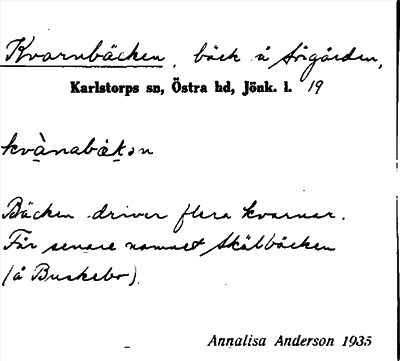 Kvarnbäcken, bäck å Sörgården,
Karlstorps sn, Östra hd, Jönk. l. 19
kvànabäkən
Bäcken driver flera kvarnar.
Får senare namnet Skälbäcken
(å Buskebo).
Annalisa Anderson 1935